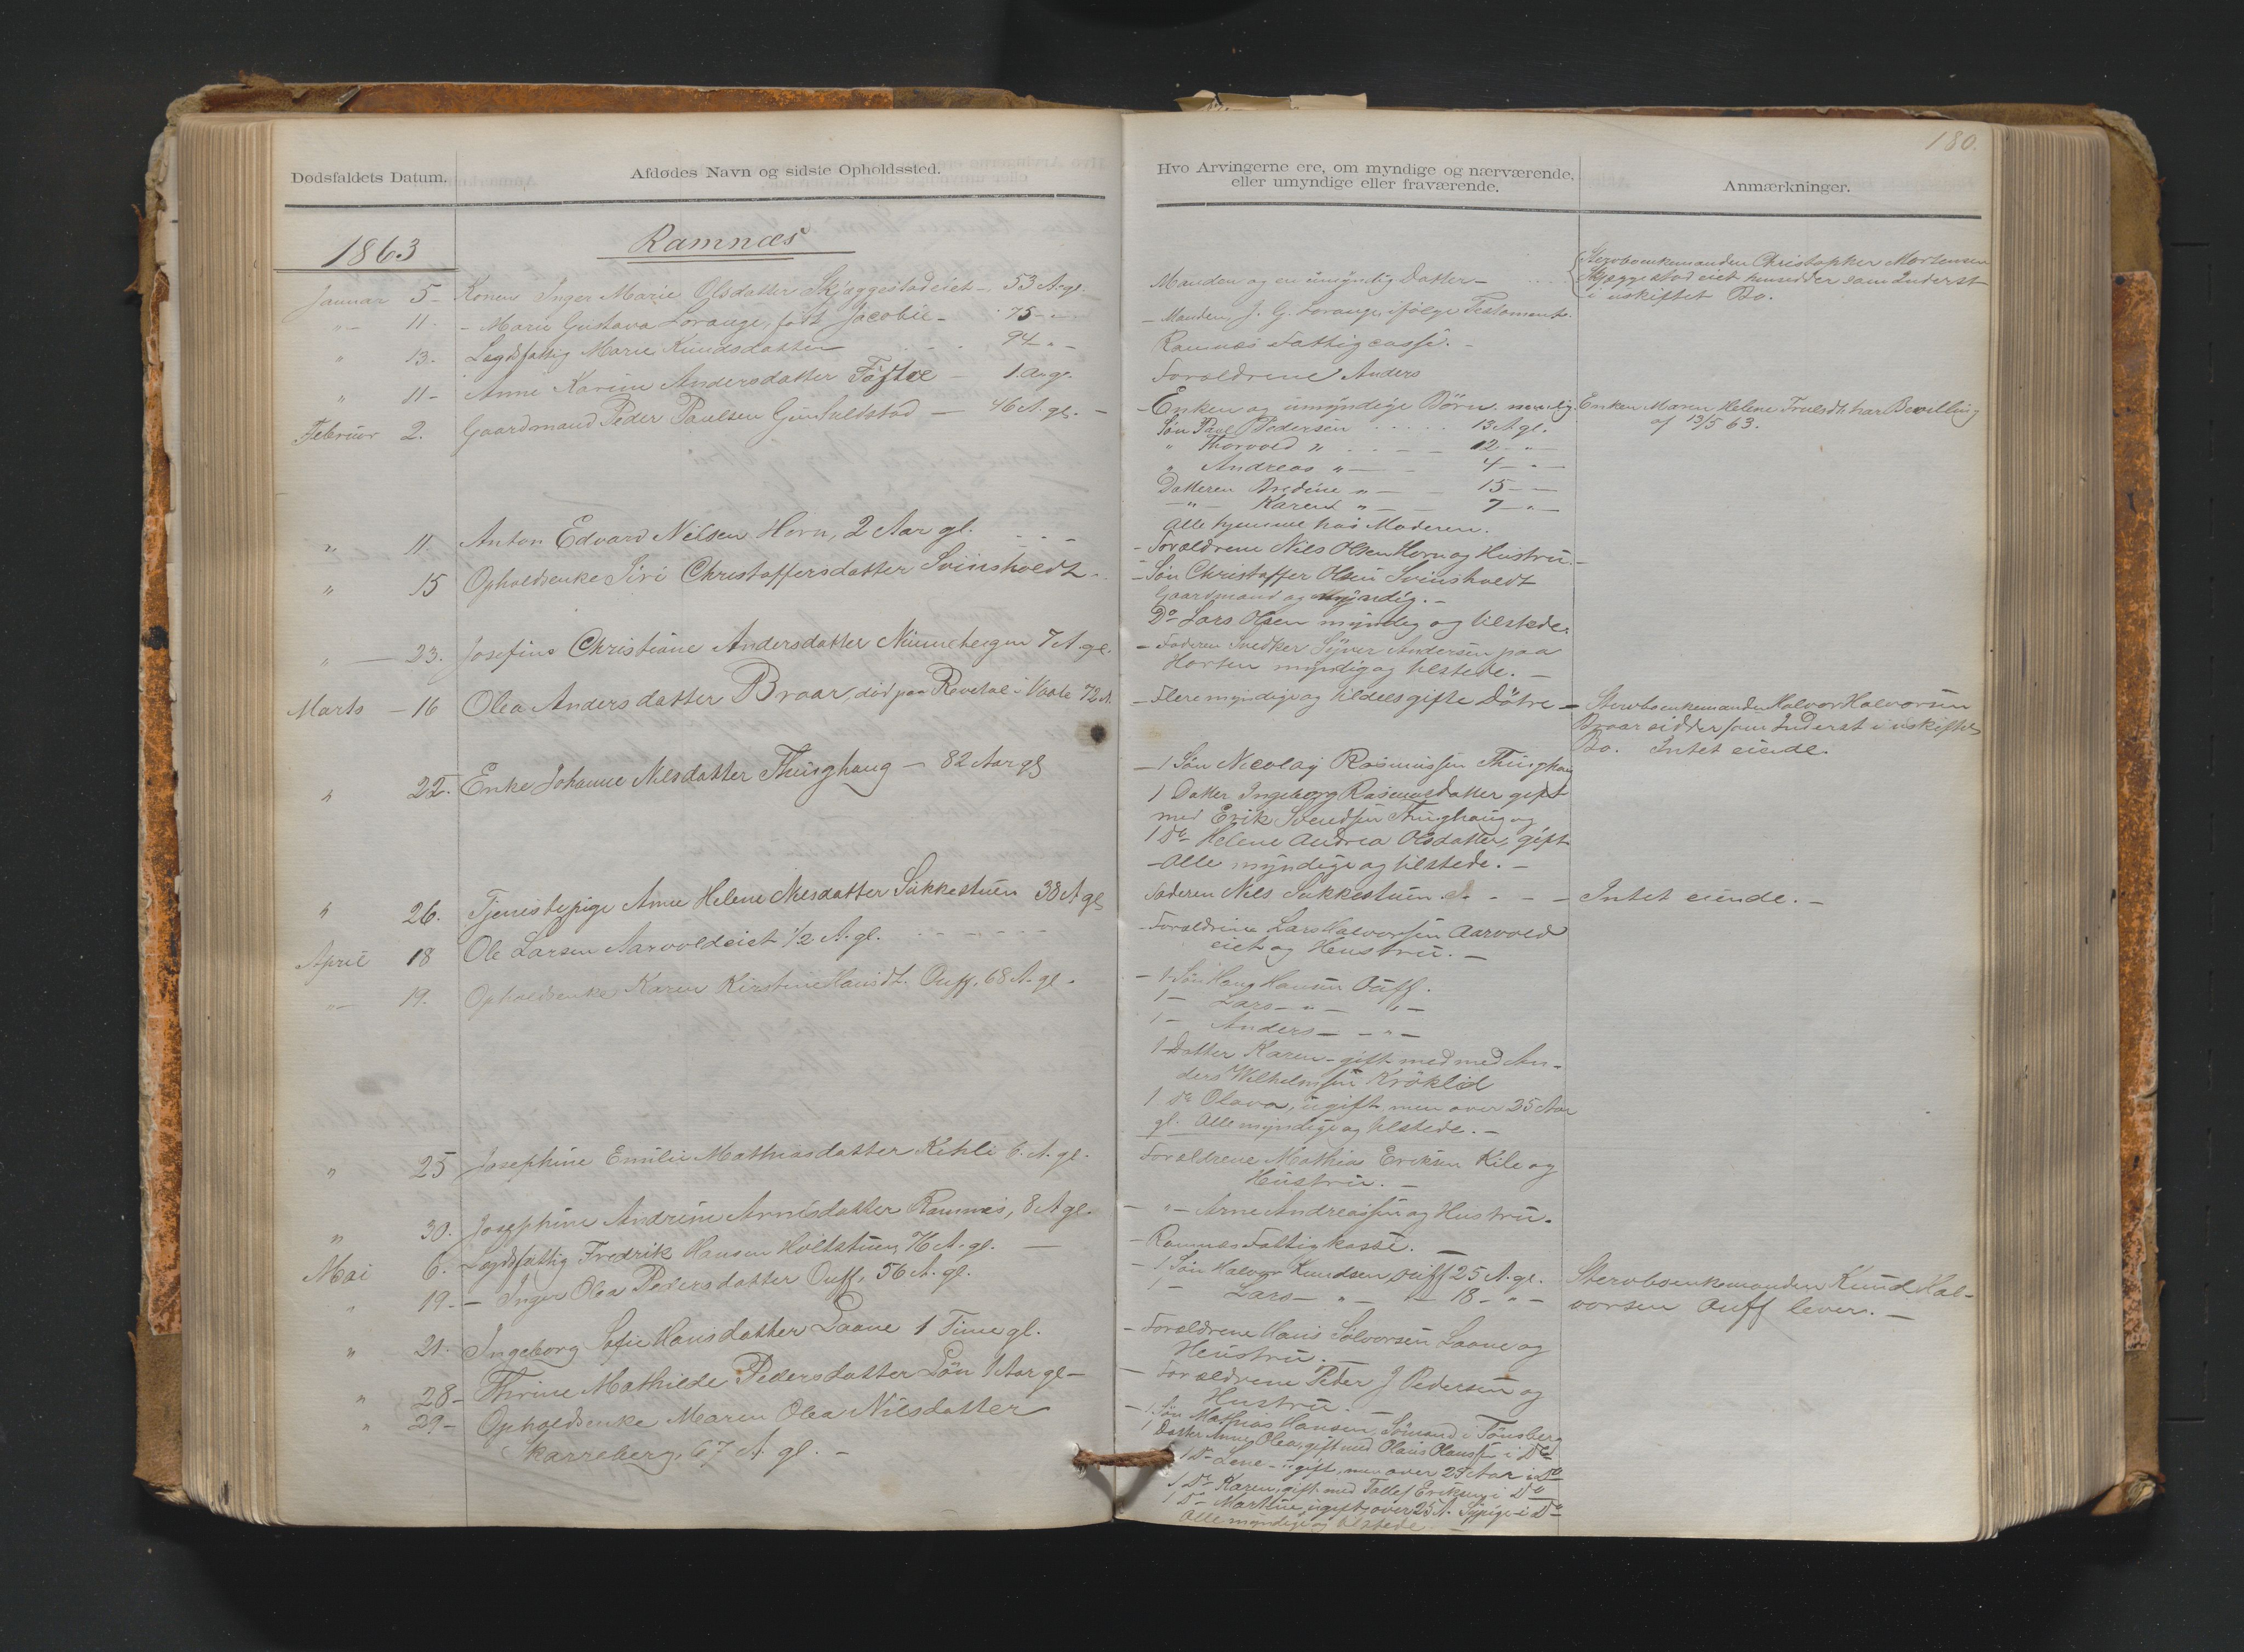 180.
Dødsfaldets Datum.
Afdødes Navn og sidste Opholdssted.
1863
Ramnæs
Januar 5- Konen Inger Marie Olsdatter Skjæggestadeiet - 53 A. gl.
"- 11. - Marie Gustava Lorange, født Jacobii - 75 - "-
" 13. Lægdsfattig Marie Knudsdatter 94 " -
" 11- Anne Karine Andersdatter Töftee - 1. A. gl.
Februar 2. Gaardmand Peder Paulsen Gunfuldstad - 46 A. gl. -
" 11. Anton Edvard Nilsen Horn, 2 Aar gl.
" 15 Opholdsenke Siri Christoffersdatter Sviinsholdt -
" - 23. Josefine Christiane Andersdatter Nünnebergen 7 A. gl.
Marts - 16 Olea Andersdatter Braar, död paa Revetal i Vaale 72 A.
" 22. Enke Johanne Nilsdatter Thinghaug - 82 Aar gl
" 26. Tjenistepige Anne Helene Nilsdatter Sükkestuen 38 A gl.
April 18 Ole Larsen Aarvoldeiet 1/2 A. gl.
"- 19. Opholdsenke Karen Kirstine Hansdt. Ouff, 68 A. gl.
" 25 Josephine Emilie Mathiasdatter Kihle 6. A. gl.
" 30. Josephine Andrine Arnesdatter Ramnæs, 8 A gl.
Mai 6. Lægdsfattig Fredrik Hansen Holtstuen, 76 A. gl. -
" 19. - Inger Olea Pedersdatter Ouff, 56 A. gl.
" 21. Ingeborg Sofie Hansdatter Laane 1 Time gl.
" 28- Thrine Mathilde Pedersdatter Lön 1 Aar gl -
" 29- Opholdsenke Maren Olea Nilsdatter
Karreberg, 67 A. gl. -
Hvo Arvingerne ere, om myndige og nærværende,
eller umyndige eller fraværende.
Manden og en umyndig Datter -
- Manden, J. G. Lorange, ifølge Testamente.
Ramnæs Fattigcasse. -
Forældrene Anders
- Enken og umyndige Börn. nemlig.
Søn Paul Pedersen 13 A gl.
" Thorvald " 12 - "
" Andreas " 4 - "
Datteren Andine " 15 - "
- " - Karen " 7 - "
Alle hjemme hos Moderen.
- Forældrene Nils Olsen Horn og Hüstrü. -
- Søn Christoffer Olsen Svinsholdt
Gaardmand og myndig. -
Do Lars Olsen myndig og tilstede.
- Faderen Snedker Syver Andersen paa
Horten myndig og tilstede. -
- Flere myndige og tildels gifte Döttre -
- 1 Søn Nicolay Rasmussen Thinghaug
1 Datter Ingeborg Rasmusdatter gift
med Erik Svendsen Thinghaug og
1 Do Helene Andrea Olsdatter, gift
- Alle myndige og tilstede. -
Faderen Nils Sükkestuen
- Forældrene Lars Halvorsen Aarvold
eiet og Hüstrü. -
- 1 Søn Hans Hansen Ouff.
1 - Lars - " - " -
1 - Anders - - " -
1 Datter Karen - gift med med An-
ders Wilhelmsen Kröklid
1 Do Olava, ugift men over 25 Aar
gl. Alle myndige og tilstede. -
Forældrene Mathias Eriksen Kile og
Hüstrü. -
- " - Arne Andreassen og Hustru.
- Ramnæs Fattigkasse. -
- 1 Søn Halvor Knudsen Ouff 25 A. gl.
1 - Lars - " - " - 18 - " -
- Forældrene Hans Solvorsen Laane og
Hüstrü. -
- Forældrene Peder J Pedersen og
Hustru. -
- 1 Søn Mathias Hansen, Sömand i Tönsberg
1 Datter Anne Olea, gift med Olaus Olausen i Do
1 Do Lene - ugift, men over 25 Aar i Do
1 Do Karen, gift med Tollef Eriksen i Do
1 Do Marthine, ugift, over 25 A. Sypige i Do
Alle myndige og tilstede. -
Anmærkninger.
Stervboenkemanden Christopher Mortensen
Skjæggestadeiet hensidder som Inderst
i uskiftet Bo.
Enken Maren Helene Trulsdt. har Bevilling
af 13/5 63.
- Stervboenkemanden Halvor Halvorsen
Braar sidder som Inderst i uskiftet
Bo. Intet eiende.
- Intet eiende. -
Stervboenkemanden Knud Hal-
vorsen Ouff lever. -